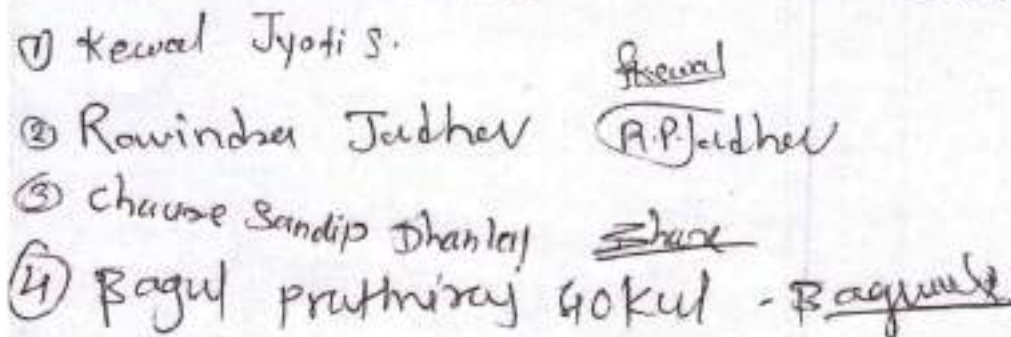 ① Kewal Jyoti S. Kewal
② Rawindra Jadhav R.P.Jadhav
③ Chause Sandip Dhanraj
④ Bagul pruthviraj Gokul - Bagul